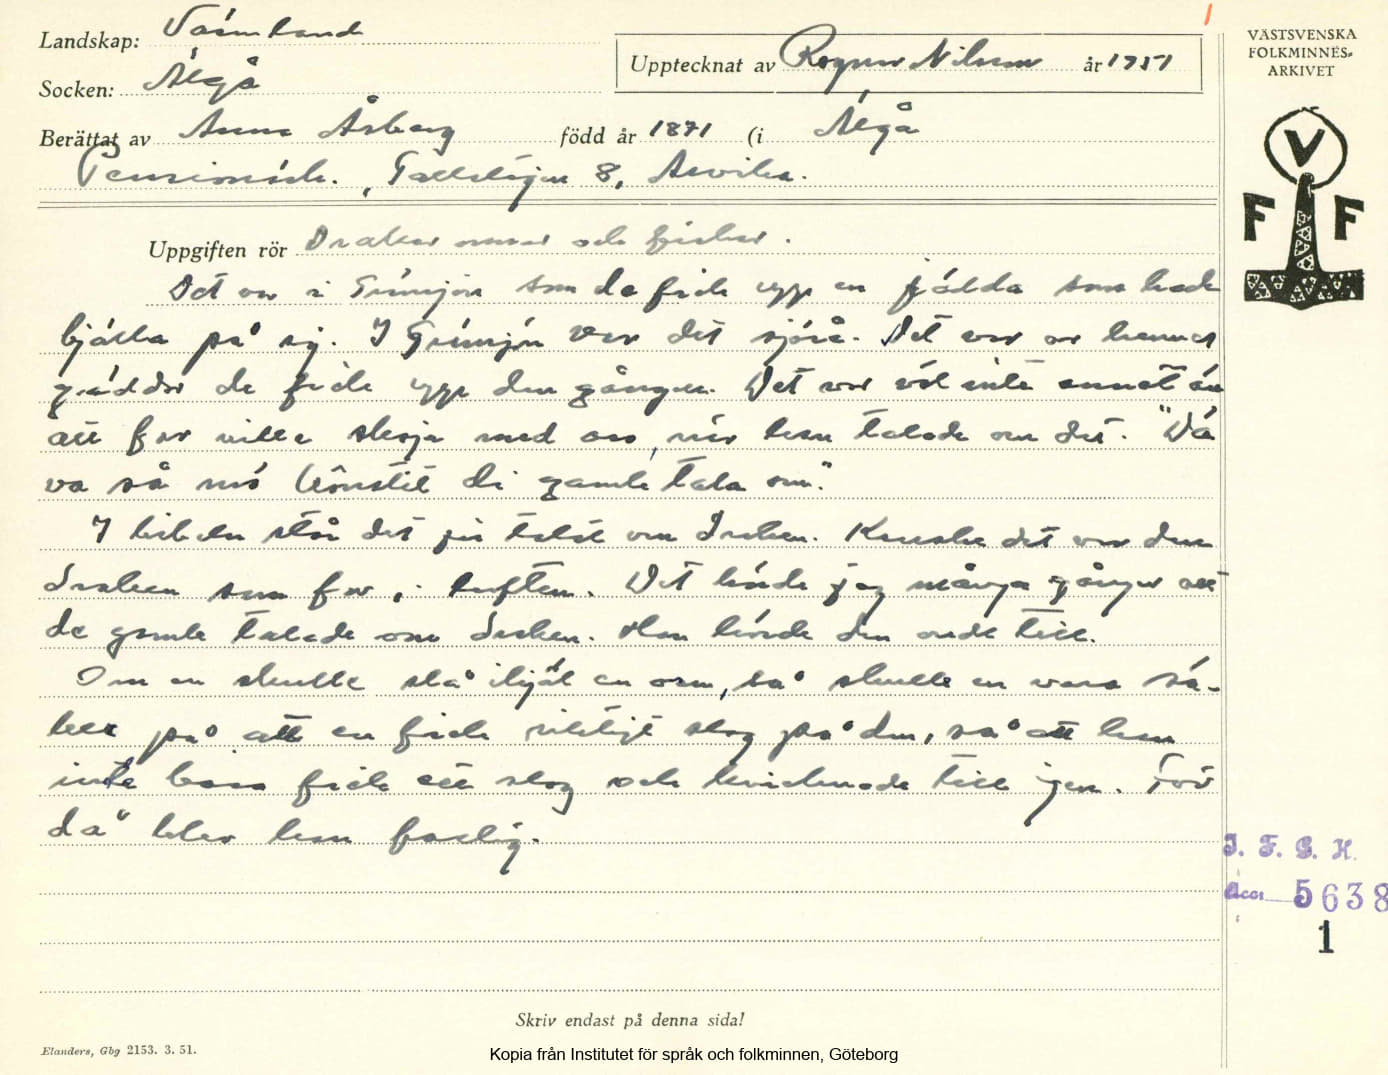 1
Landskap: Värmland
Socken: Älgå
Upptecknat av Ragnar Nilsson år 1951
Berättat av Anna Åsberg född år 1871 (i Älgå
Pensionär., 8, Arvika.
VÄSTSVENSKA
FOLKMINNES-
ARKIVET
V
F F
Uppgiften rör Drakar ormar och fiskar.
Det var i som de fick upp en jädda som hade
bjälla på sig. I var det sjörå. Det var av hennes
gäddor de fick upp den gången. Det var väl inte annat än
att far ville skoja med oss, när han talade om det. "Dä
va så mö kônstit di gamle tala om."
I bibeln står det ju talat om draken. Kanske det var den
draken som for i luften. Det hörde jag många gånger att
de gamle talade om draken. Han hörde den onde till.
Om en skulle slå ihjäl en orm, så skulle en vara sä-
ker på att en fick riktigt slag på den, så att han
inte bara fick ett slag och kvicknade till igen. För
då blev han farlig.
I. F. G. H.
Acc. 5638
1
Skriv endast på denna sida!
Elanders, Gbg 2153. 3. 51.
Kopia från Institutet för språk och folkminnen, Göteborg